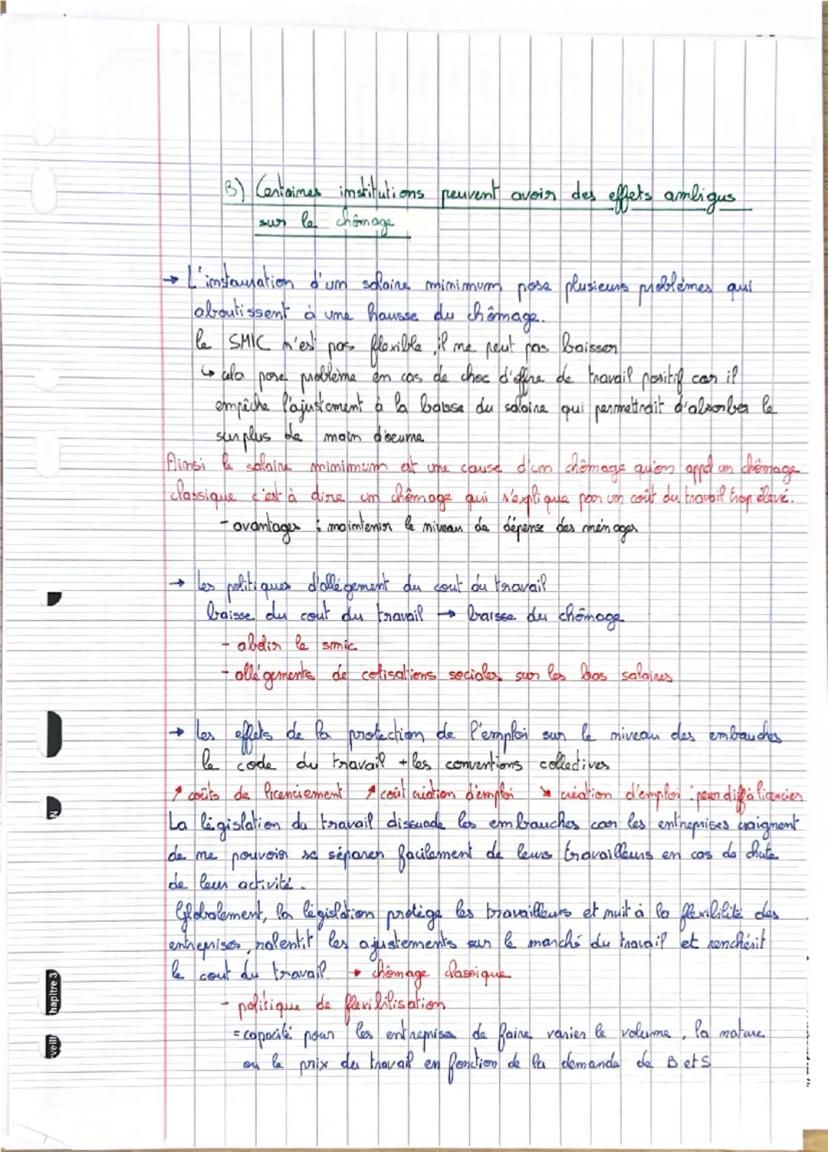 B) Certaines institutions peuvent avoir des effets ambigus
sur le chômage
→ L'instauration d'un salaire minimum pose plusieurs problèmes qui
aboutissent à une hausse du chômage.
le SMIC n'est pas flexible, il ne peut pas baisser
↳ cela pose problème en cas de choc d'offre de travail positif car il
empêche l'ajustement à la baisse du salaire qui permettrait d'absorber le
surplus de main d'oeuvre
Ainsi le salaire minimum est une cause d'un chômage qu'on appel un chômage
classique c'est à dire un chômage qui s'explique par un coût du travail trop élevé.
- avantages : maintenir le niveau de dépense des ménages
→ les politiques d'allégement du cout du travail
baisse du cout du travail → baisse du chômage
- abolir le smic
- allégements de cotisations sociales sur les bas salaires
→ les effets de la protection de l'emploi sur le niveau des embauches
le code du travail + les conventions collectives
↗ coûts de licenciement ↗ coût création d'emploi ↘ création d'emploi : peur
La législation du travail dissuade les embauches car les entreprises craignent
de ne pouvoir se séparer facilement de leurs travailleurs en cas de chute
de leur activité.
Globalement, la législation protège les travailleurs et nuit à la flexibilité des
entreprises, ralentit les ajustements sur le marché du travail et renchérit
le cout du travail. → chômage classique
- politique de flexibilisation
= capacité pour les entreprises de faire varier le volume, la nature
ou le prix du travail en fonction de la demande de B et S
hapitre 3
veill